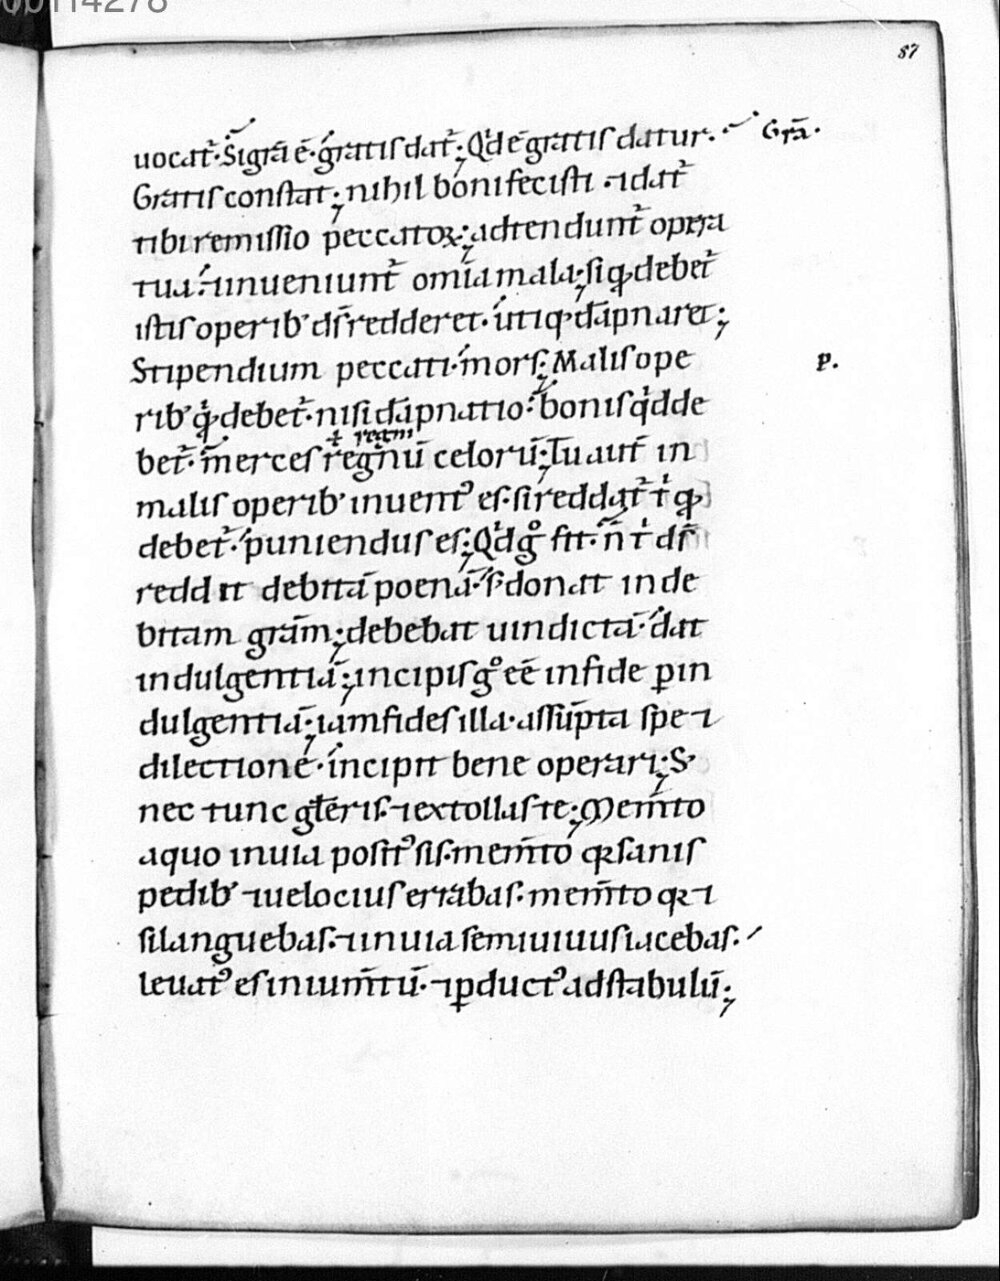 87
uocat᷑. Si gr̄a ē. gratis dat᷑; Qd̓ ē gratis datur. Gr̄a.
Gratis constat; nihil boni fecisti. ⁊dat᷑
tibi remissio peccatoꝝ; adtendunt᷑ opera
tua. ⁊inueniunt᷑ om̄ia mala; si qđ debet᷑
istis operib’ d̄s redderet. utiq; dāpnaret;
Stipendium peccati mors; Malis ope p.
rib’ qđ debet᷑. nisi dāpnatio. bonis qd̓ de
ł regnum
bet᷑. merces regnū celorū; Tu aut̄ in
malis operib’ inuent᷒ es. si reddat᷑ t̓ qđ
debet᷑. puniendus es; Qd̓ gͦ fit. n̄ t̓ d̄s
reddit debitā poenā. s; donat inde
bitam gr̄am; debebat uindictā. dat
indulgentiā; incipis gͦ eē in fide ꝑ in
dulgentiā. iam fides illa. assūpta spe ⁊
dilectione. incipit bene operari; S;
nec tunc gl̄eris. ⁊extollas te; Mem̄to
a quo in uia posit᷒ sis. mem̄to qꝛ sanis
pedib’ ⁊uelocius errabas. mem̄to qꝛ ⁊
si languebas. ⁊in uia semiuiuus iacebas.
leuat᷒ es in ium̄tū. ⁊ꝑduct᷒ ad stabulū;